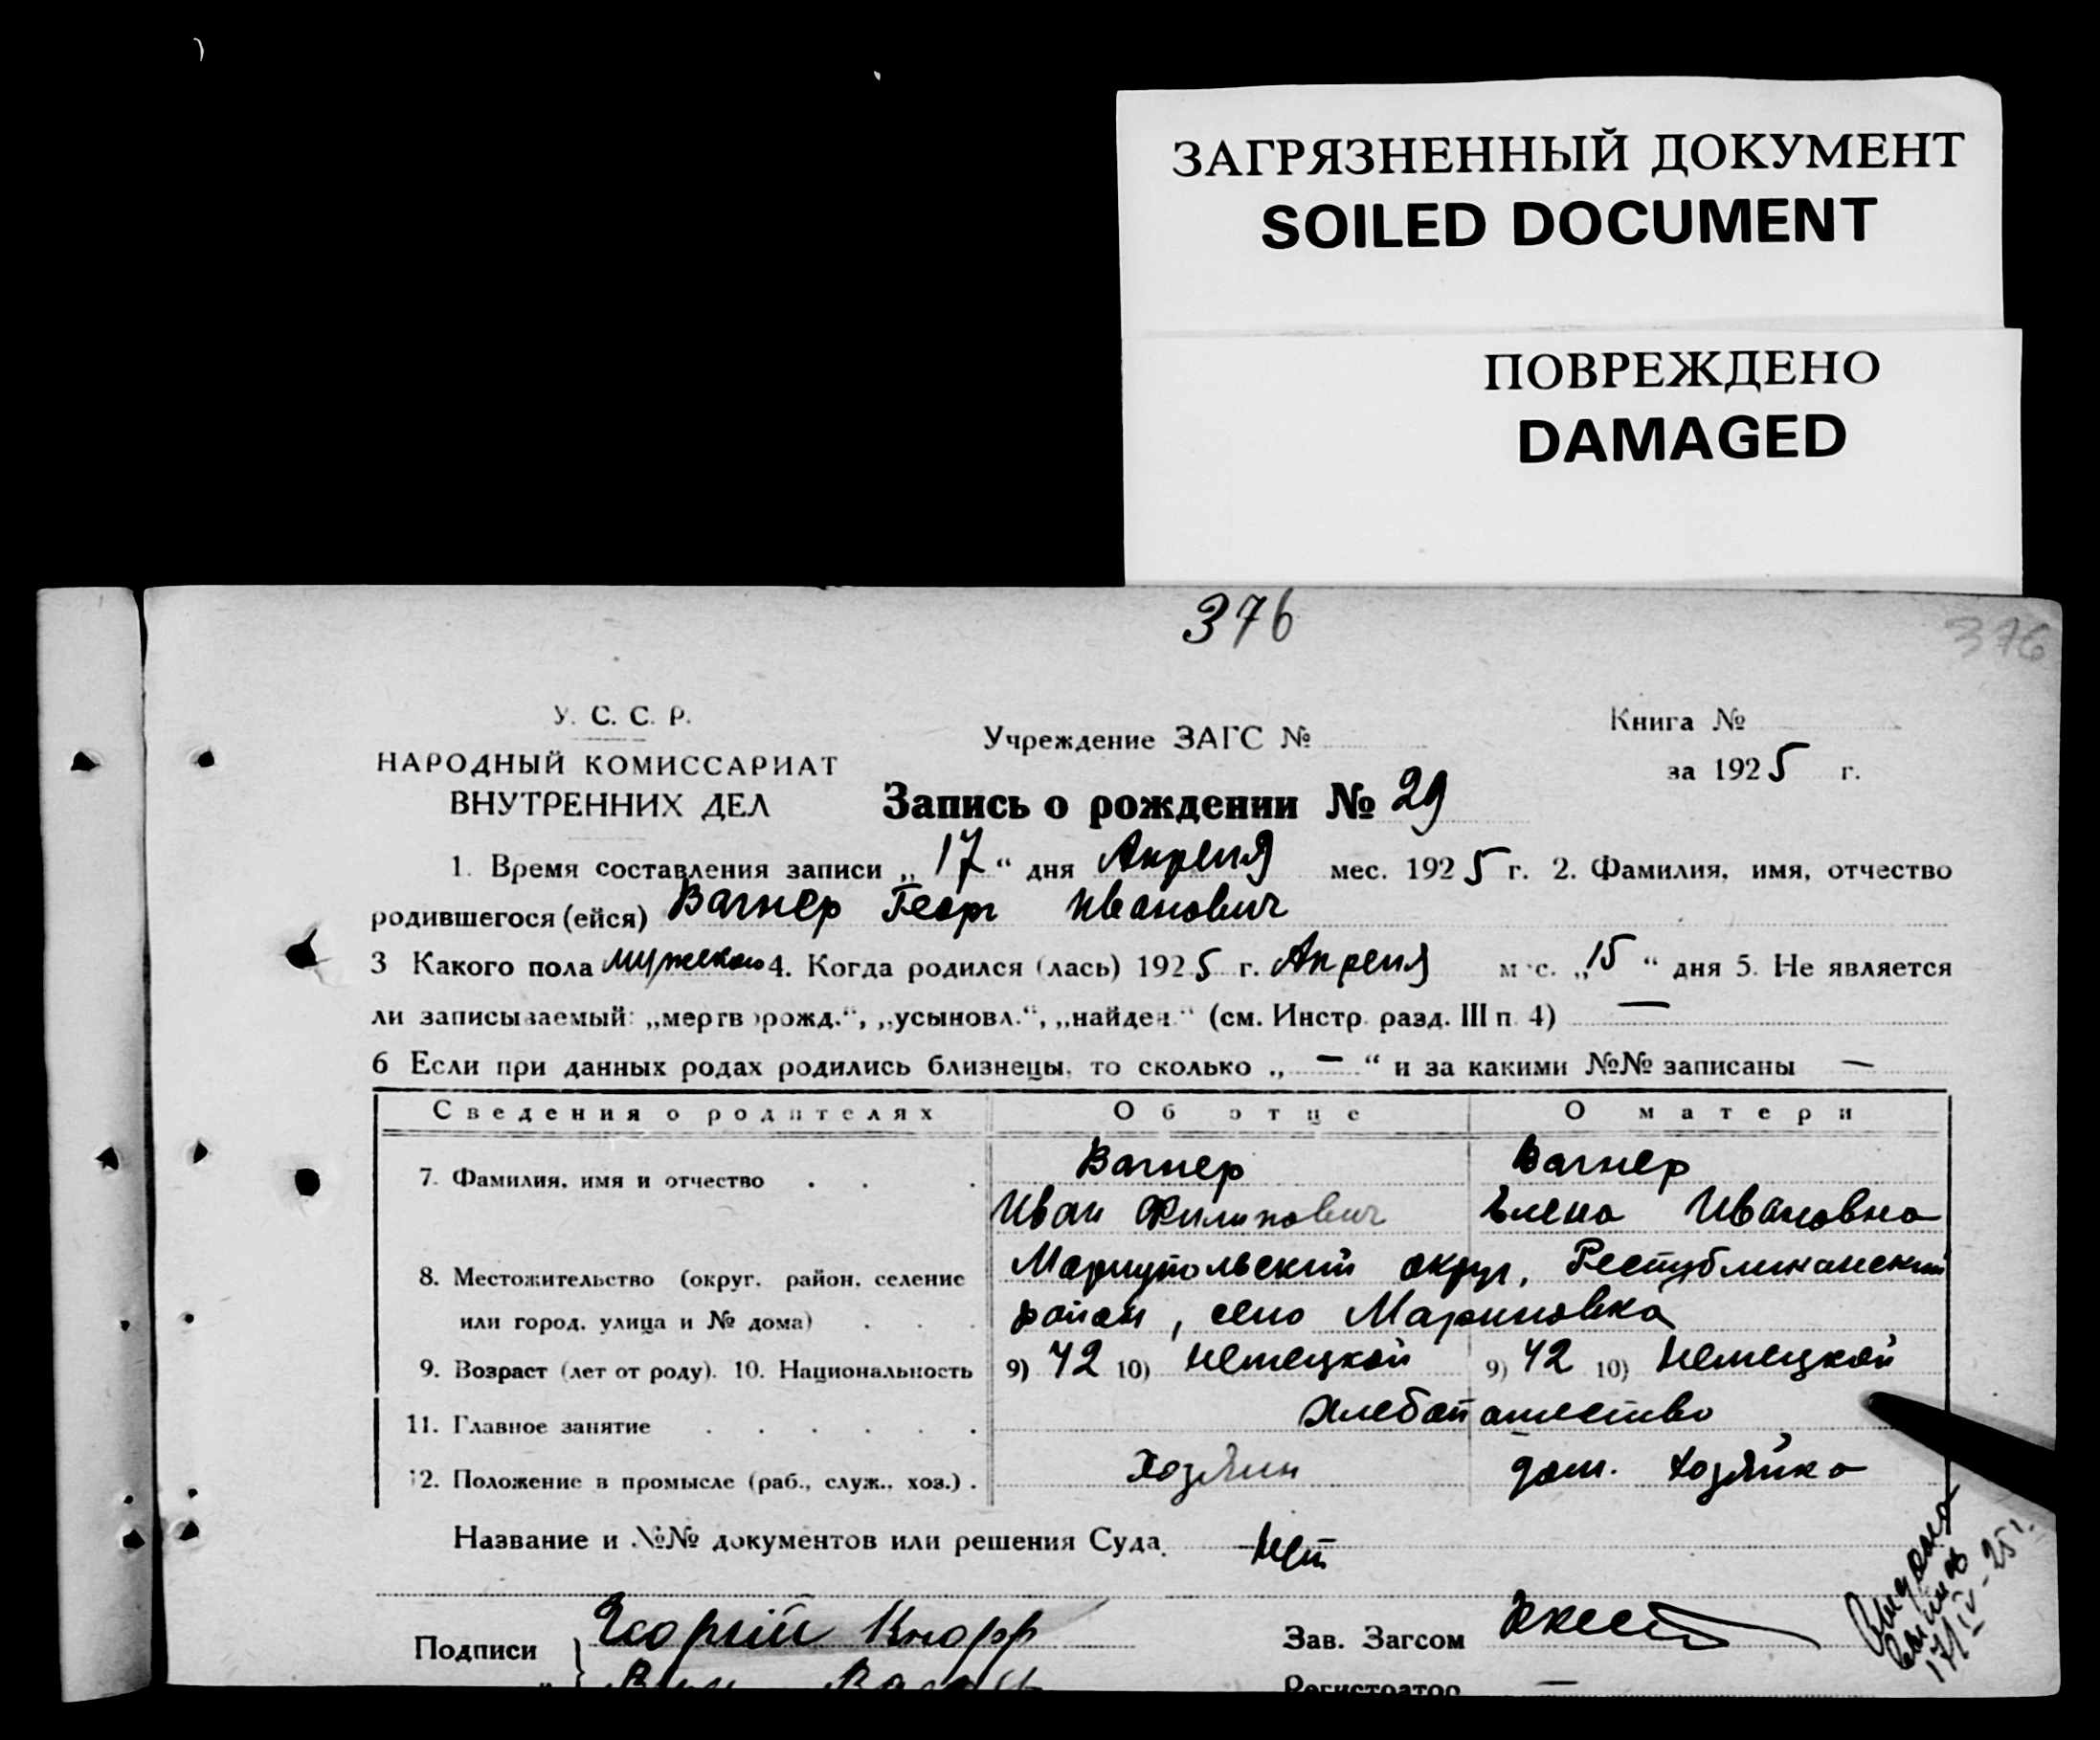 ЗАГРЯЗНЕННЫЙ ДОКУМЕНТ
SOILED DOCUMENT
ПОВРЕЖДЕНО
DAMAGED
376
376
У. С. С. Р.
НАРОДНЫЙ КОМИССАРИАТ
ВНУТРЕННИХ ДЕЛ
Учреждение ЗАГС №
Книга №
за 1925 г.
Запись о рождении № 29
1. Время составления записи „17“ дня Апреля мес. 1925 г. 2. Фамилия, имя, отчество
родившегося (ейся) Вагнер Георг Иванович
3 Какого пола мужеского 4. Когда родился (лась) 1925 г. Апреля м с. „15“ дня 5. Не является
ли записываемый: „мертворожд.“, „усыновл.“, „найден.“ (см. Инстр. разд. III п 4) —
6 Если при данных родах родились близнецы, то сколько „—“ и за какими №№ записаны —
Сведения о родителях Об отце О матери
7. Фамилия, имя и отчество . . . Вагнер Вагнер
Иван Филипович Елена Ивановна
8. Местожительство (округ, район, селение Мариупольский округ, Республиканский
или город, улица и № дома) . . . район, село Мариновка
9. Возраст (лет от роду). 10. Национальность 9) 42 10) немецкой 9) 42 10) немецкой
11. Главное занятие . . . . . . хлебопашество
12. Положение в промысле (раб., служ., хоз.) . Хозяин дом. хозяйка
Название и №№ документов или решения Суда. Нет
Подписи Георгій Кнорр Зав. Загсом
Регистратор —
Выдана
17/IV-25 г.